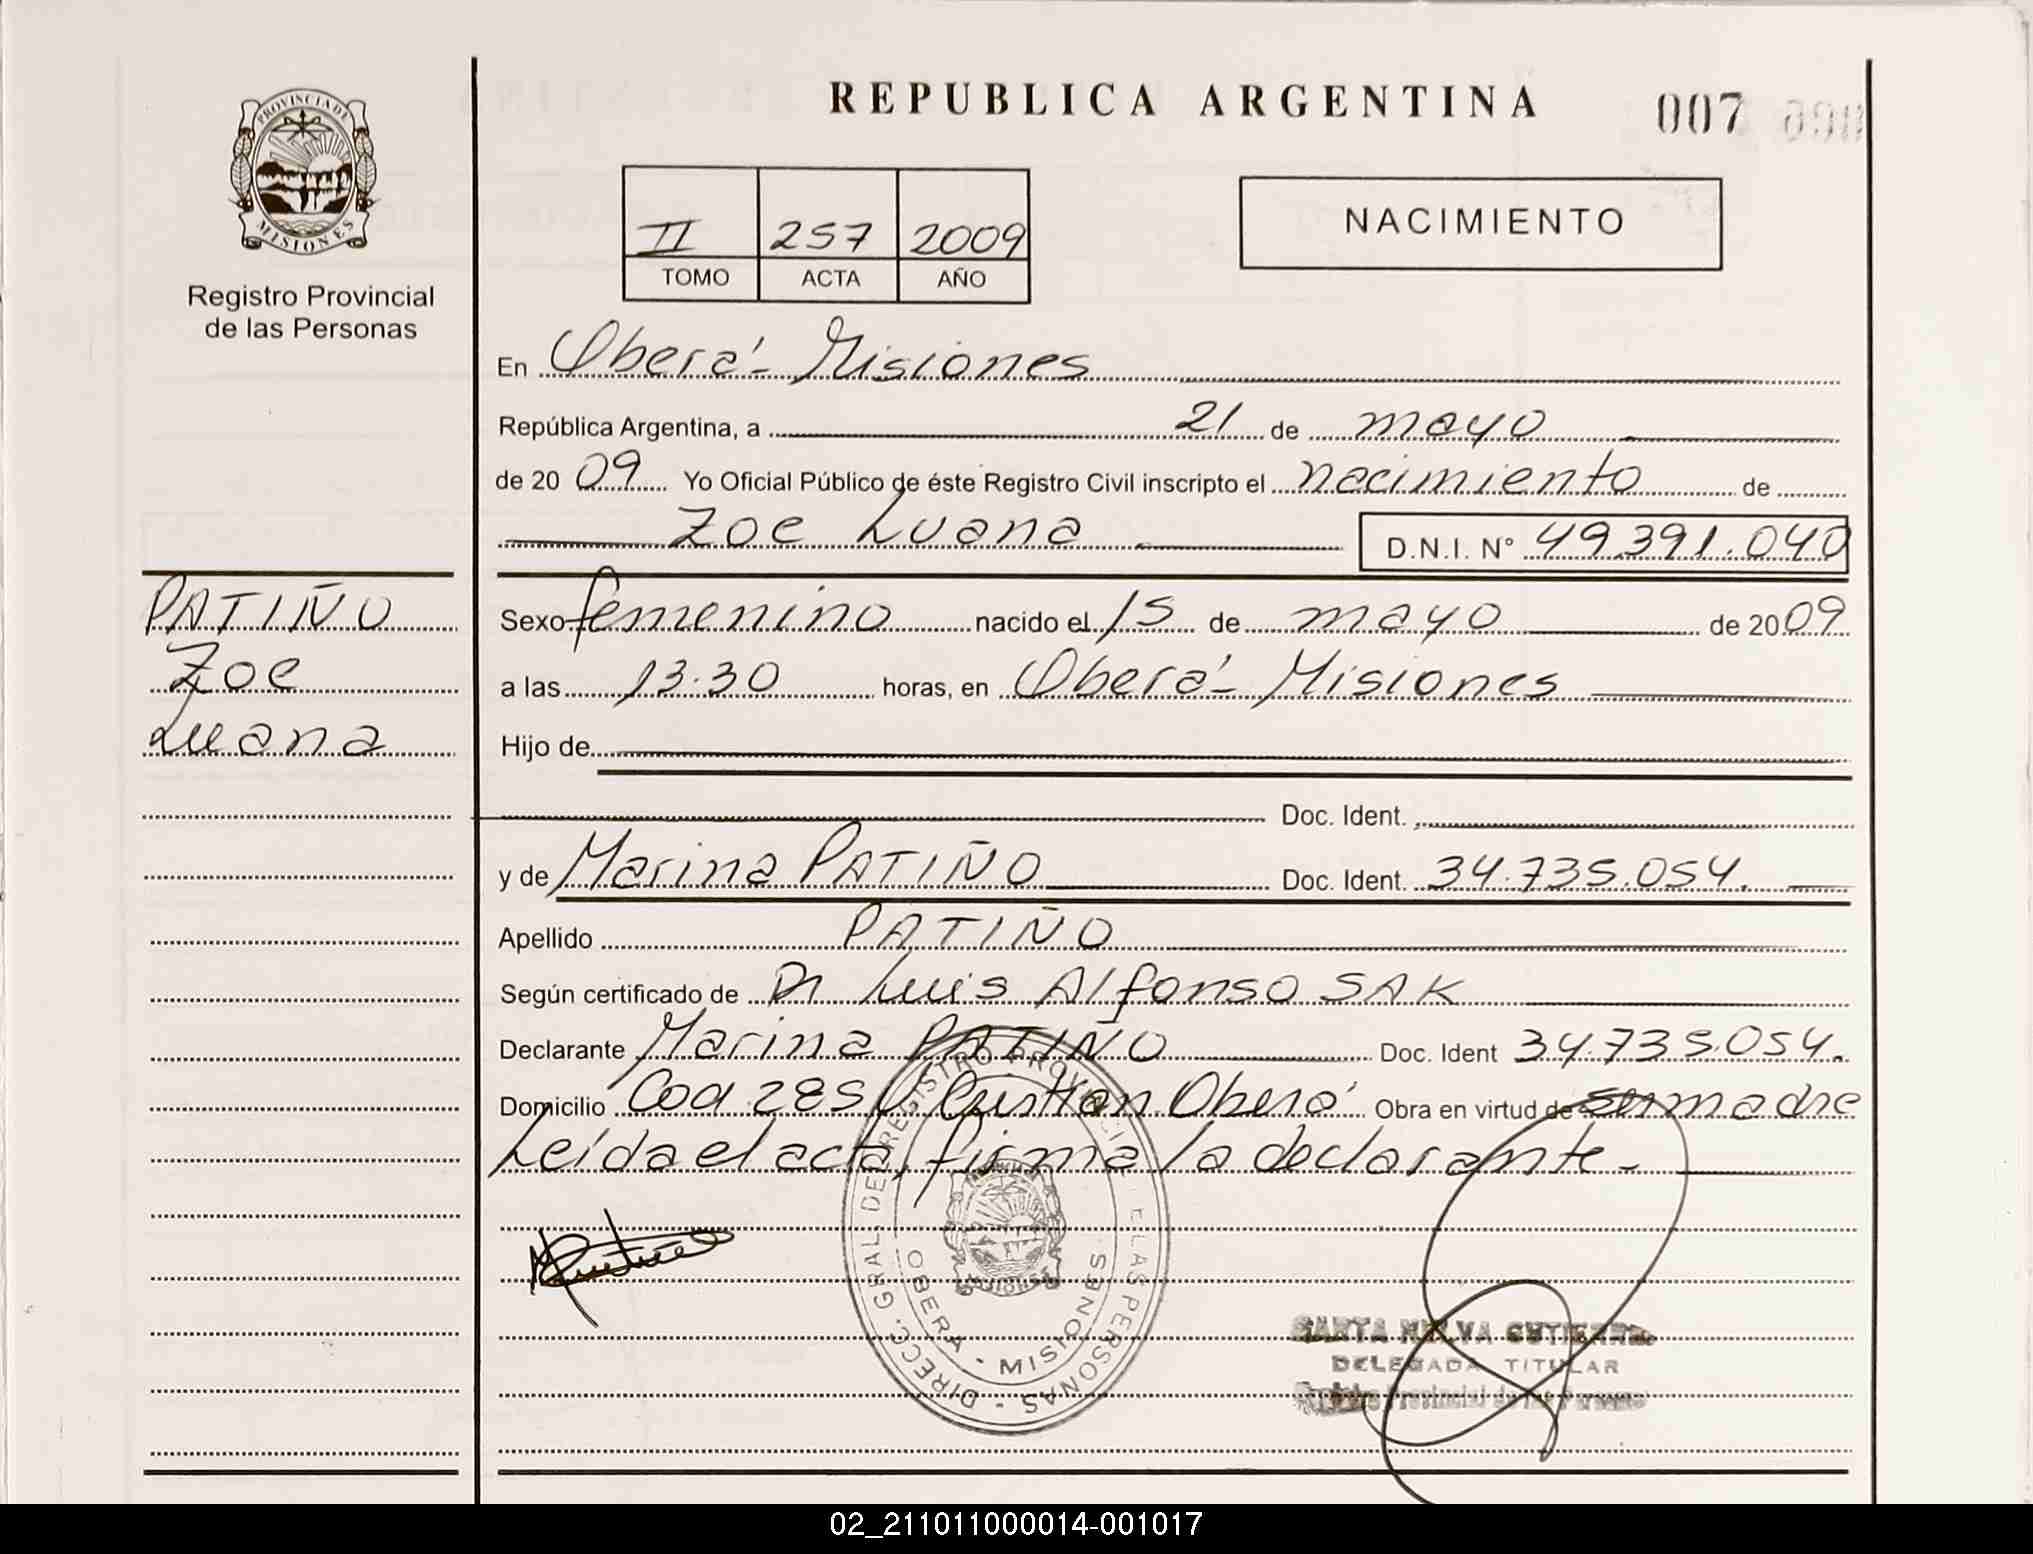 REPUBLICA ARGENTINA
007
PROVINCIA DE
MISIONES
Registro Provincial
de las Personas
II 257 2009
TOMO ACTA AÑO
NACIMIENTO
En Oberá - Misiones
República Argentina, a 21 de mayo
de 20 09 Yo Oficial Público de éste Registro Civil inscripto el nacimiento de
Zoe Luana D.N.I. N° 49.391.040
PATIÑO
Zoe
Luana
Sexo femenino nacido el 15 de mayo de 20 09
a las 13.30 horas, en Oberá - Misiones
Hijo de
Doc. Ident.
y de Marina PATIÑO Doc. Ident. 34.735.054.
Apellido PATIÑO
Según certificado de Dr Luis Alfonso SAK
Declarante Marina PATIÑO Doc. Ident 34.735.054.
Domicilio 285 Oberá Obra en virtud de ser madre
Leída el acta, firma la declarante.-
DIRECC. GRAL. DE REGISTRO PROVINCIAL DE LAS PERSONAS
OBERA - MISIONES
DELEGADA TITULAR
Registro Provincial de las Personas
02_211011000014-001017